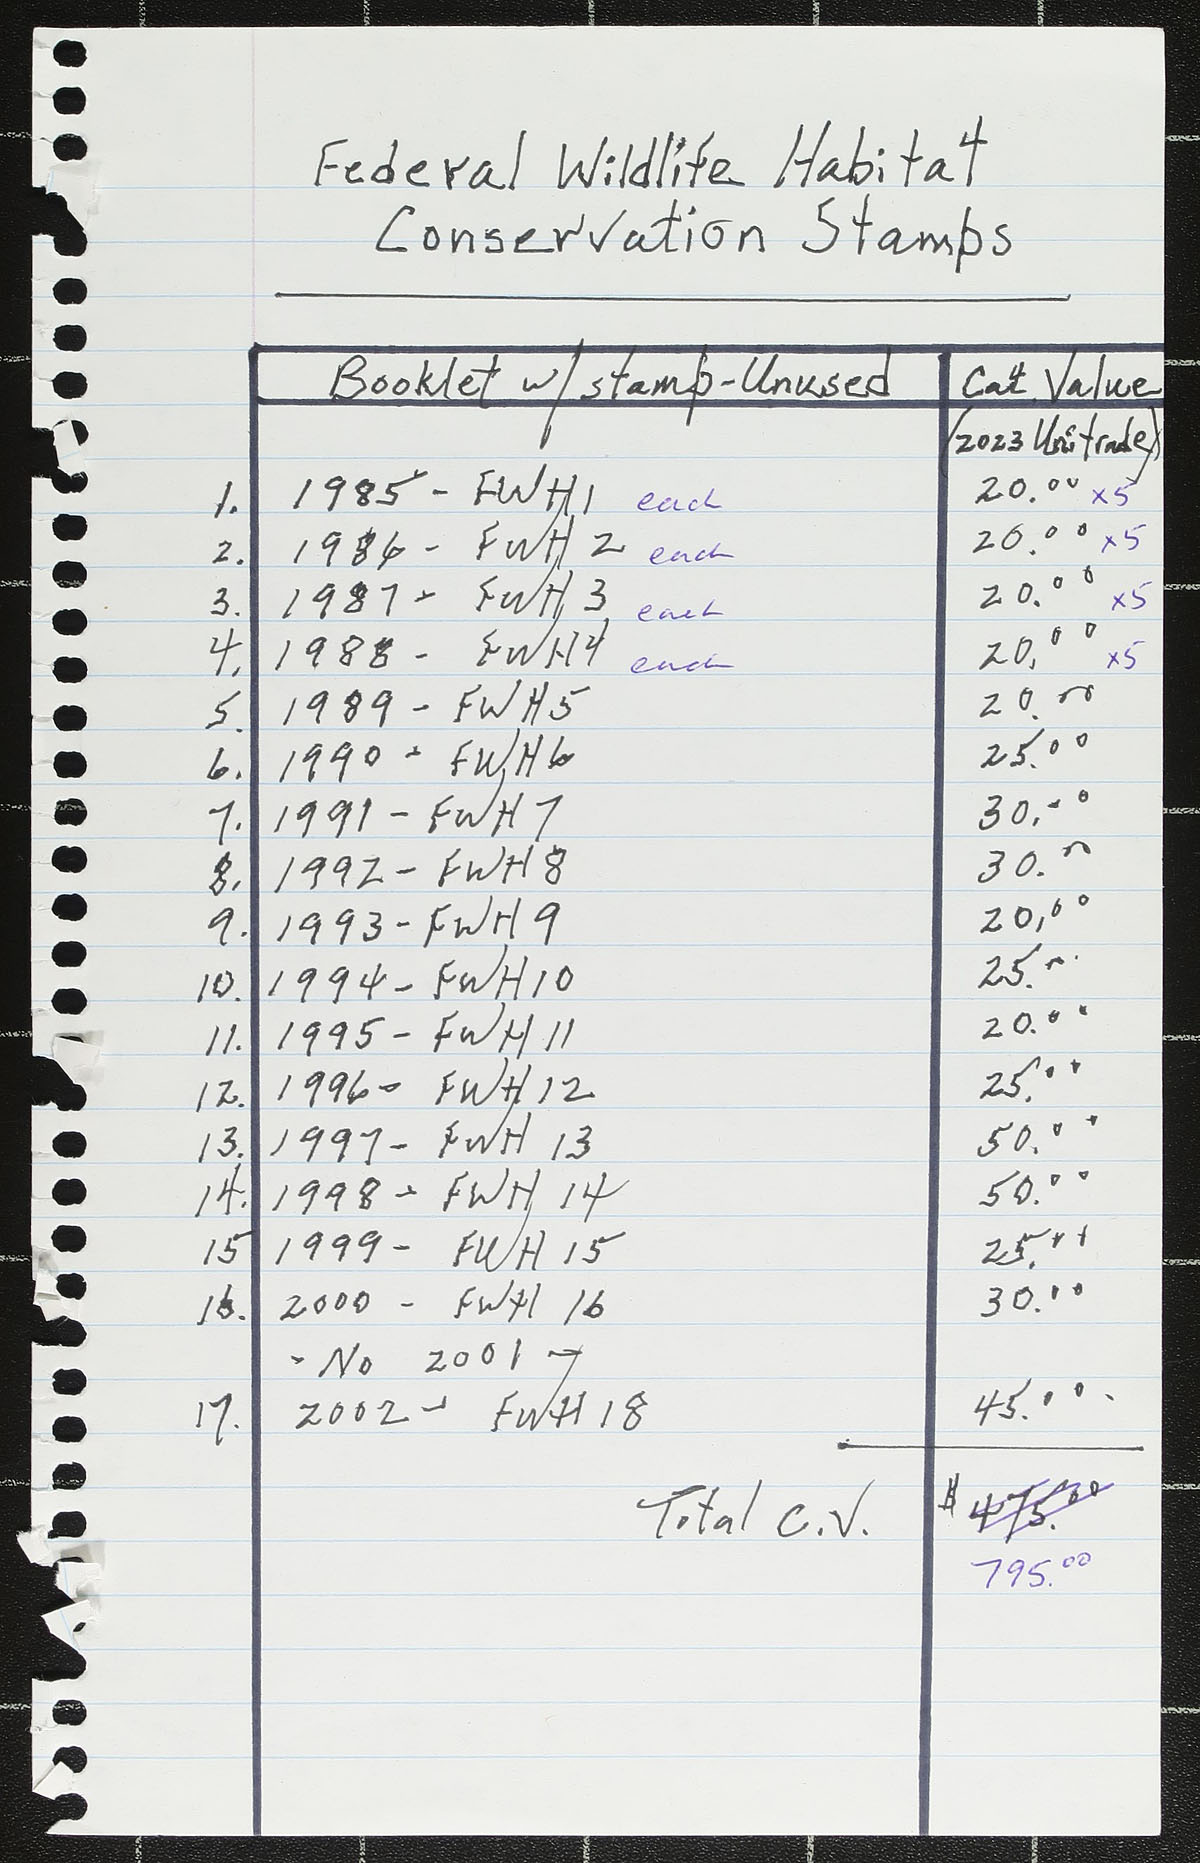 Federal Wildlife Habitat
Conservation Stamps
Booklet w/ stamp-Unused Cat. Value
(2023 Unitrade)
1. 1985 - FWH1 each 20.00 x5
2. 1986 - FWH 2 each 20.00 x5
3. 1987 - FWH 3 each 20.00 x5
4. 1988 - FWH4 each 20.00 x5
5. 1989 - FWH5 20.00
6. 1990 - FWH6 25.00
7. 1991 - FWH 7 30.00
8. 1992 - FWH 8 30.00
9. 1993 - FWH 9 20.00
10. 1994 - FWH10 25.00
11. 1995 - FWH 11 20.00
12. 1996 - FWH 12 25.00
13. 1997 - FWH 13 50.00
14. 1998 - FWH 14 50.00
15 1999 - FWH 15 25.00
16. 2000 - FWH 16 30.00
- No 2001 -
17. 2002 - FWH 18 45.00
Total C.V. $ 475.00
795.00